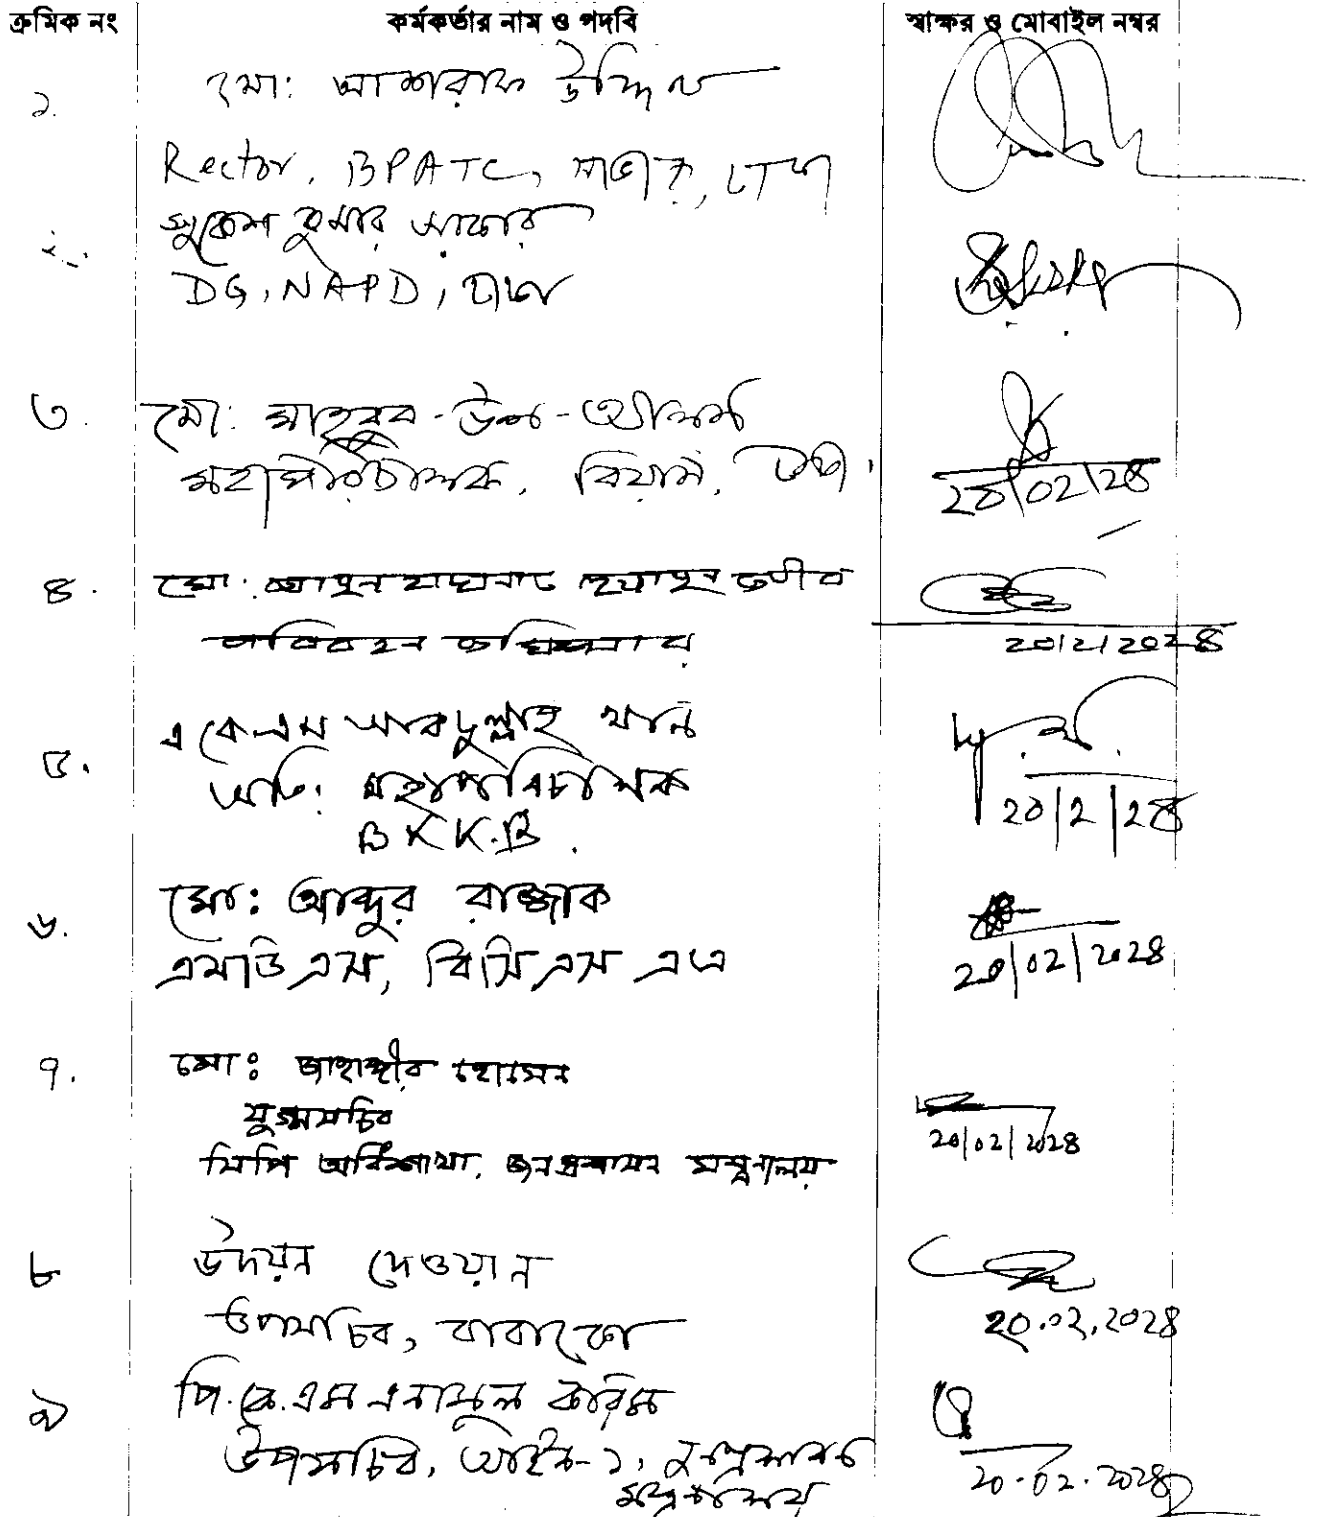 ক্রমিক নং কর্মকর্তার নাম ও পদবি স্বাক্ষর ও মোবাইল নম্বর
১. মো: আশরাফ উদ্দিন
Rector, BPATC, সাভার, ঢাকা
২. সুকেশ কুমার সরকার
DG, NAPD, ঢাকা
৩. মো: মাহবুব-উল-আলম
মহাপরিচালক, বিয়াম, ঢাকা।
20/02/2৪
৪. মো:
পরিবহন কমিশনার
20/2/202৪
৫. এ কে এম আবদুল্লাহ খান
অতি: মহাপরিচালক
BKKB.
20/2/2৪
৬. মো: আব্দুর রাজ্জাক
এমডিএস, বিসিএস এএ
20/02/202৪
৭. মো: জাহাঙ্গীর হোসেন
যুগ্মসচিব
সিপি অধিশাখা, জনপ্রশাসন মন্ত্রণালয়
20/02/202৪
৮ উদয়ন দেওয়ান
উপসচিব,
20.02.202৪
৯ পি.কে.এম এনামুল করিম
উপসচিব, আইন-১, জনপ্রশাসন
মন্ত্রণালয়
20.02.202৪